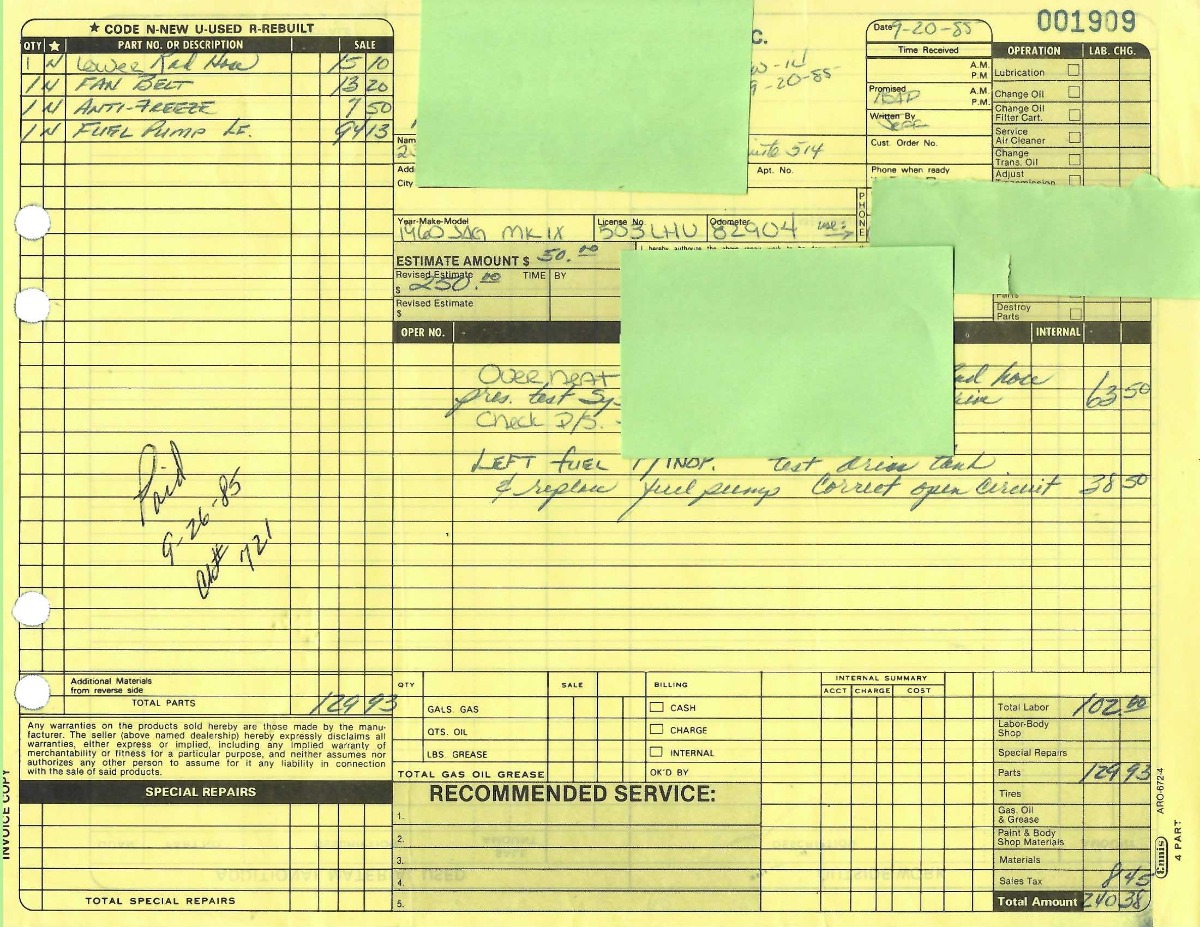 ★ CODE N-NEW U-USED R-REBUILT
QTY ★ PART NO. OR DESCRIPTION SALE
1 N Lower Rad Hose 15 10
1 N FAN BELT 13 20
1 N ANTI-FREEZE 7 50
1 N FUEL PUMP LF. 94 13
Paid
9-26-85
Ck# 721
Additional Materials
from reverse side
TOTAL PARTS 129 93
Any warranties on the products sold hereby are those made by the manu-
facturer. The seller (above named dealership) hereby expressly disclaims all
warranties, either express or implied, including any implied warranty of
merchantability or fitness for a particular purpose, and neither assumes nor
authorizes any other person to assume for it any liability in connection
with the sale of said products.
SPECIAL REPAIRS
TOTAL SPECIAL REPAIRS
INVOICE COPY
C.
9-20-85
Nam
Suite 514
Add
Apt. No.
City
Year-Make-Model License No. Odometer
1960 JAG MK IX 503 LHU 82904 use:
PHONE
ESTIMATE AMOUNT $ 50.00
Revised Estimate TIME BY
$ 250.00
Revised Estimate
$
001909
Date 9-20-85
Time Received
A.M.
P.M.
Promised ASAP A.M.
P.M.
Written By Jeff
Cust. Order No.
Phone when ready
OPERATION LAB. CHG.
Lubrication
Change Oil
Change Oil
Filter Cart.
Service
Air Cleaner
Change
Trans. Oil
Adjust
Transmission
Parts
Destroy
Parts
OPER NO. INTERNAL
Overheat Rad hose
pres. test Sys 63 50
Check P/S.
LEFT FUEL P/INOP. test drain tank
& replace fuel pump Correct open circuit 38 50
QTY SALE BILLING
GALS. GAS CASH
QTS. OIL CHARGE
LBS GREASE INTERNAL
TOTAL GAS OIL GREASE OK'D BY
INTERNAL SUMMARY
ACCT CHARGE COST
RECOMMENDED SERVICE:
1.
2.
3.
4.
5.
Total Labor 102.00
Labor-Body
Shop
Special Repairs
Parts 129 93
Tires
Gas, Oil
& Grease
Paint & Body
Shop Materials
Materials
Sales Tax 8 45
Total Amount 240 38
Ennis ARO-672-4
4 PART